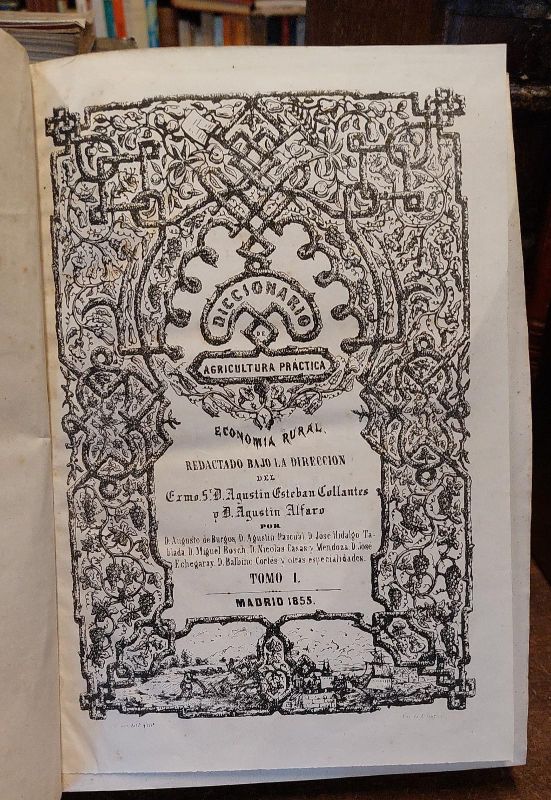 DICCIONARIO
DE
AGRICULTURA PRÁCTICA
ECONOMIA RURAL,
REDACTADO BAJO LA DIRECCION
DEL
Exmo. Sr. D. Agustin Esteban Collantes
y D. Agustin Alfaro
POR
D. Augusto de Burgos, D. Agustin Pascual, D. José Hidalgo Ta-
blada, D. Miguel Bosch, D. Nicolas Casas y Mendoza, D. José
Echegaray, D. Balbino Cortés y otras especialidades.
TOMO I.
MADRID 1855.